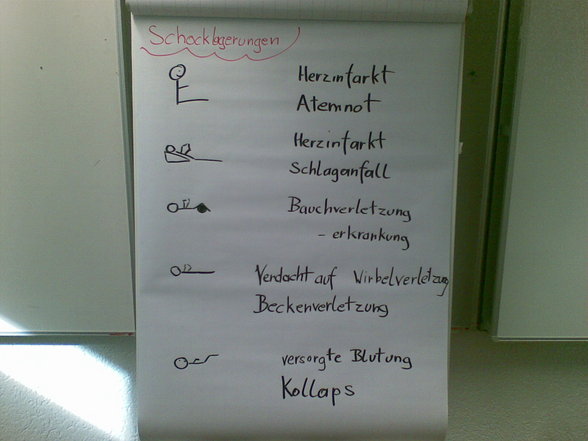 Schocklagerungen
Herzinfarkt
Atemnot
Herzinfarkt
Schlaganfall
Bauchverletzung
- erkrankung
Verdacht auf Wirbelverletzung
Beckenverletzung
versorgte Blutung
Kollaps